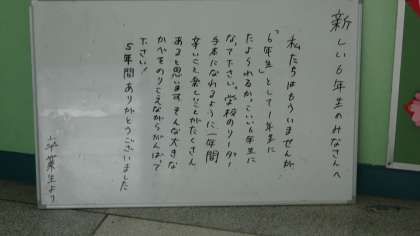 新しい6年生のみなさんへ
私たちはもういませんが
「6年生」として1年生に
たよられるか、こいい6年生に
なって下さい。学校のリーダー
手本になれるように一年間
辛いこと楽しいことがたくさん
あると思います。そんな大きな
かべをのりこえながらがんばって
下さい！
5年間ありがとうございました
卒業生より